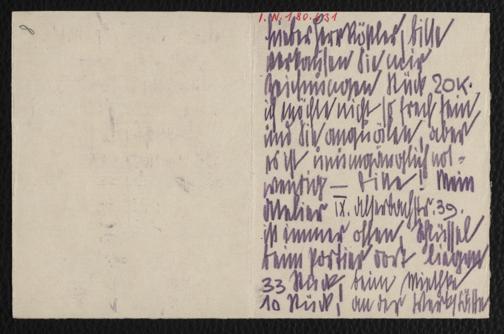 I.N. 180.631
8
Lieber Herr Rößler, bitte
verkaufen Sie mir
Zeichnungen Stück 20 K.
ich möchte nicht so frech sein
und Sie anquälen, aber
es ist unumgänglich not=
wendig — bitte! Mein
Atelier IX. Alserbachstr. 39.
ist immer offen Schlüssel
beim Portier dort liegen
33 Stück, beim Miethke
10 Stück, an der Werkstätte